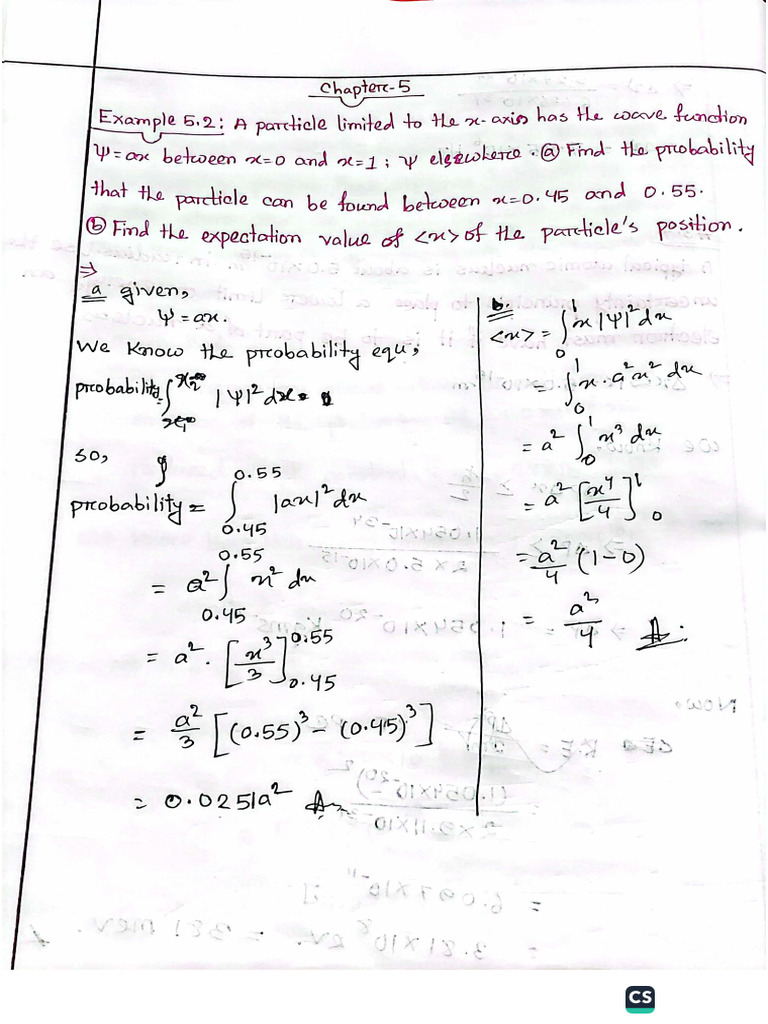 Chapter-5
Example 5.2: A particle limited to the x-axis has the wave function
Ψ=ax between x=0 and x=1; Ψ elsewhere. ⓐ Find the probability
that the particle can be found between x=0.45 and 0.55.
ⓑ Find the expectation value of <x> of the particle's position.
⇒
a given,
Ψ=ax.
We know the probability equ,
probability = ∫ |Ψ|² dx
so,
probability = ∫_{0.45}^{0.55} |ax|² dx
= a² ∫_{0.45}^{0.55} x² dx
= a² · [x³/3]_{0.45}^{0.55}
= a²/3 [(0.55)³ − (0.45)³]
= 0.0251a²
b.
<x> = ∫_0^1 x |Ψ|² dx
= ∫_0^1 x · a²x² dx
= a² ∫_0^1 x³ dx
= a² [x⁴/4]_0^1
= a²/4 (1−0)
= a²/4
CS